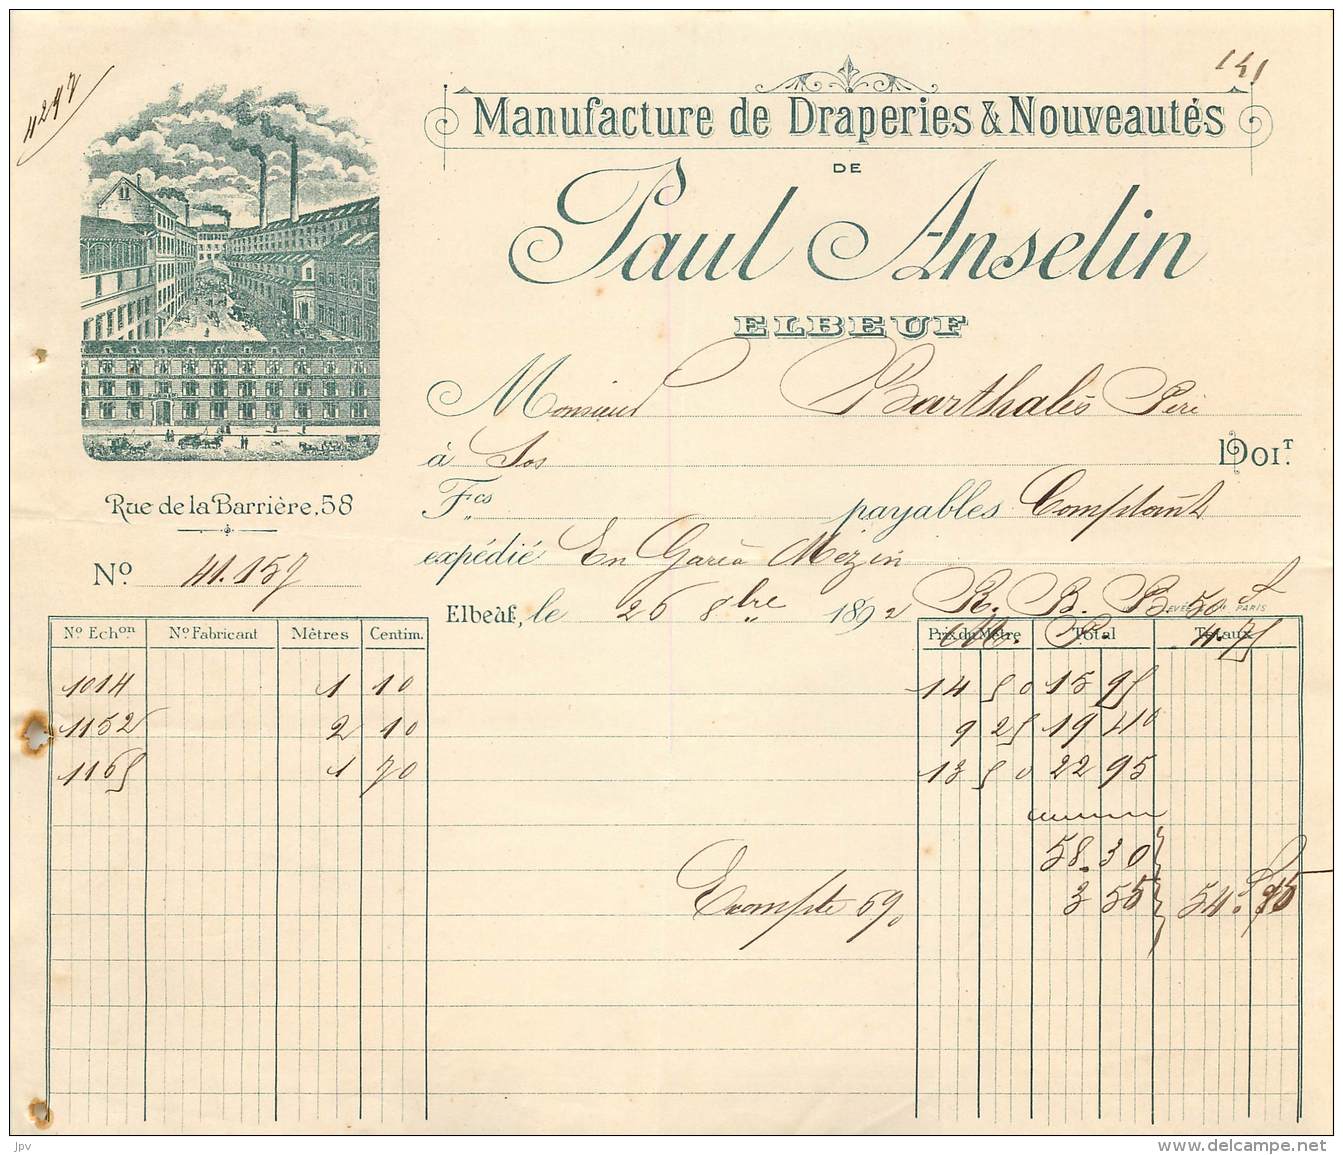 4297
141
Manufacture de Draperies & Nouveautés
DE
Paul Anselin
ELBEUF
Monsieur Barthalès Père
à Sos DOIT.
Fcs payables Comptant
Rue de la Barrière, 58
expédié En Gare à Mézin
No 41.157
Elbeuf, le 26 8bre 1892 R. B. B. 50 F
PARIS
P. 4.75
No Echon No Fabricant Mètres Centim. Prix du Mètre Total Totaux
1014 1 10 14 50 15 95
1152 2 10 9 25 19 40
1165 1 70 13 50 22 95
58.30
Escompte 6% 3 55 54.75
jpv
www.delcampe.net